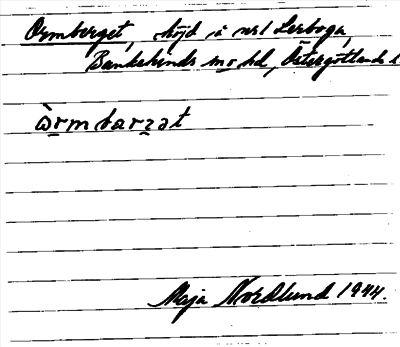 Ormberget, höjd i nr 1 Lerboga,
Bankekinds sn o hd, Östergötlands l
òrmbarzət
Maja Nordlund 1944.